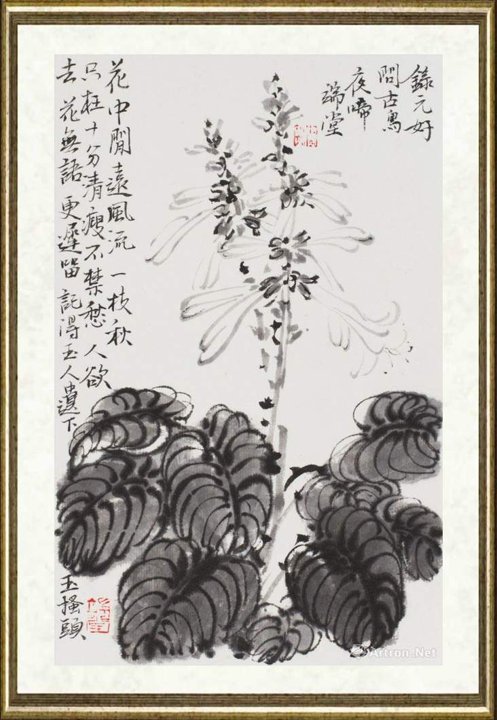 錄元好
問古烏
夜啼
端堂
花中閒遠風流一枝秋
只枉十分清瘦不禁愁人欲
去花無語更遲留記得玉人遺下
玉搔頭
Artron.Net